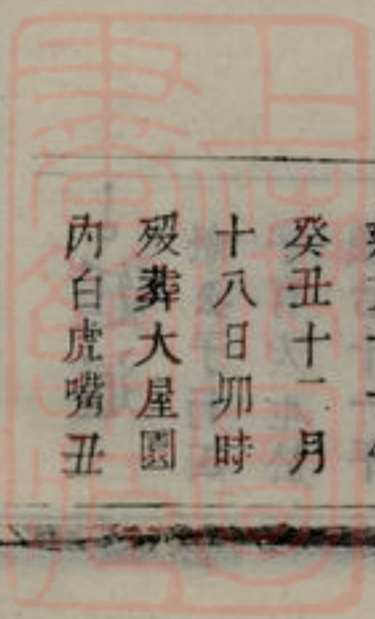 癸丑十二月
十八日卯時
歿葬大屋園
内白虎嘴丑